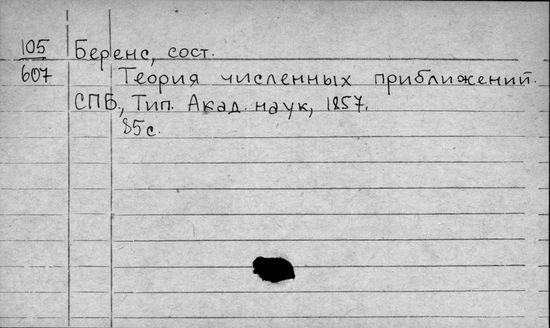 105 Беренс, сост.
607 Теория численных приближений.
СПБ., Тип. Акад. наук, 1857.
85с.